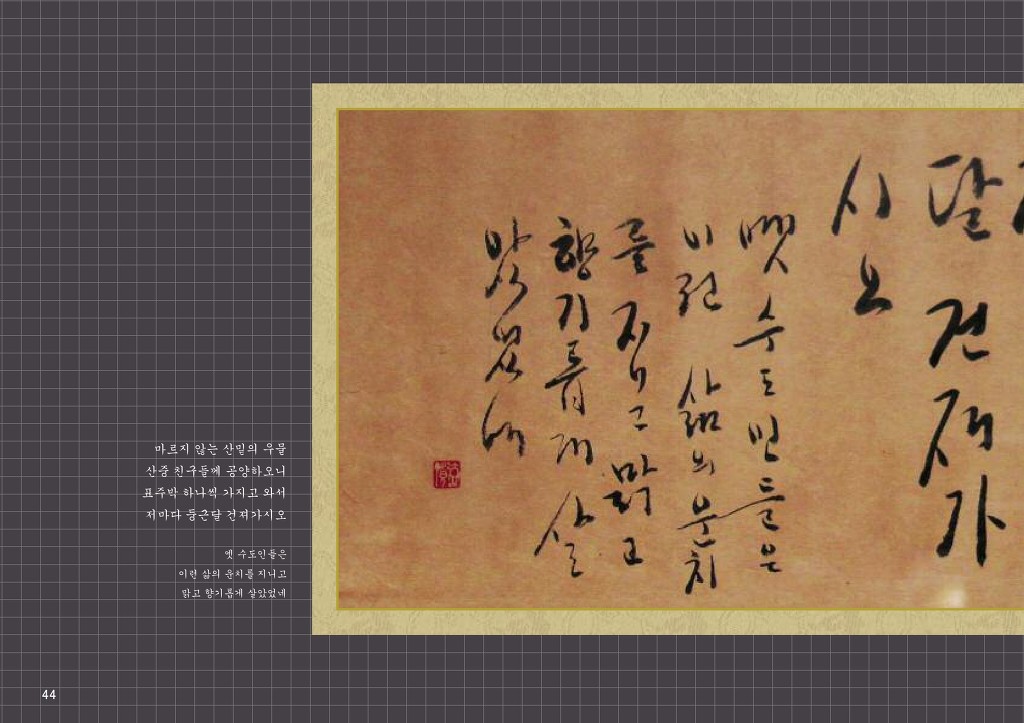 마르지 않는 산밑의 우물
산중 친구들께 공양하오니
표주박 하나씩 가지고 와서
저마다 둥근달 건져가시오
옛 수도인들은
이런 삶의 운치를 지니고
맑고 향기롭게 살았었네
달 건져가
시오
옛 수도인들은
이런 삶의 운치
를 지니고 맑고
향기롭게 살
았었네
44